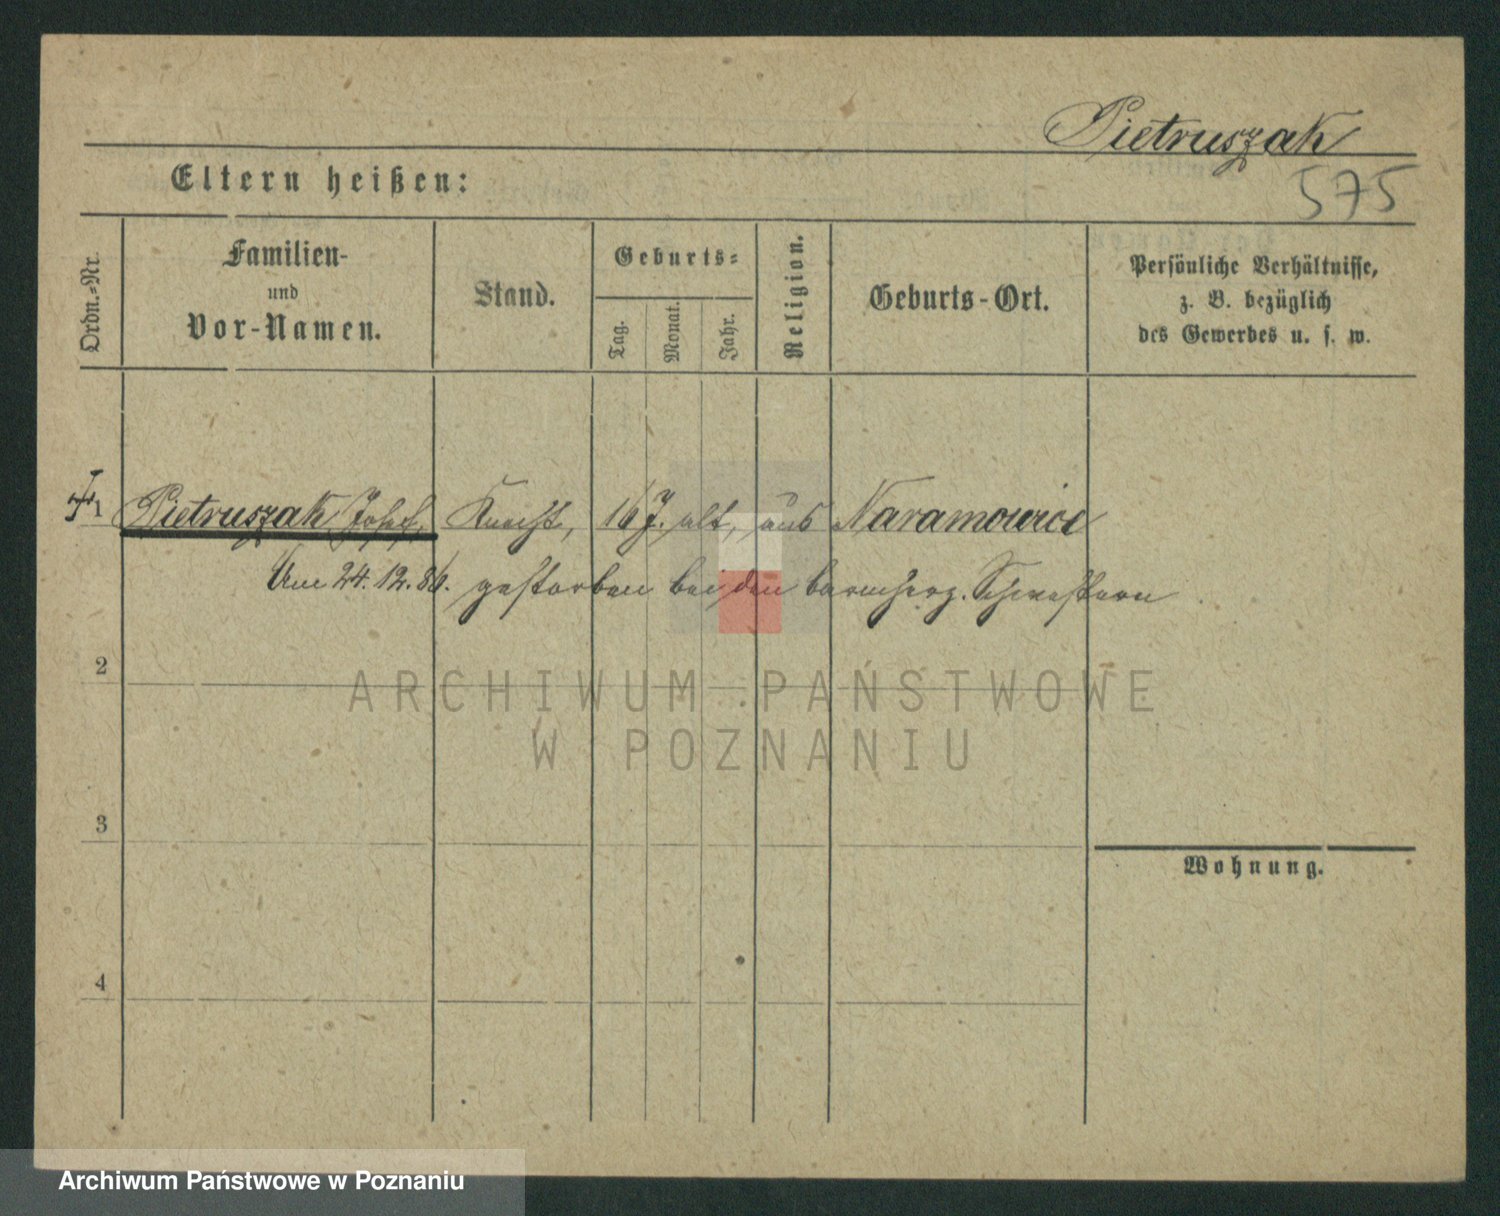 Pietruszak
575
Eltern heißen:
Ordn.=Nr.
Familien-
und
Vor-Namen.
Stand.
Geburts=
Tag.
Monat.
Jahr.
Religion.
Geburts-Ort.
Persönliche Verhältnisse,
z. B. bezüglich
des Gewerbes u. s. w.
1 Pietruszak Josef, Knecht, 16 J. alt, aus Naramowice
Am 24.12.86. gestorben bei den barmherz. Schwestern
2
ARCHIWUM PAŃSTWOWE
W POZNANIU
3
Wohnung.
4
Archiwum Państwowe w Poznaniu